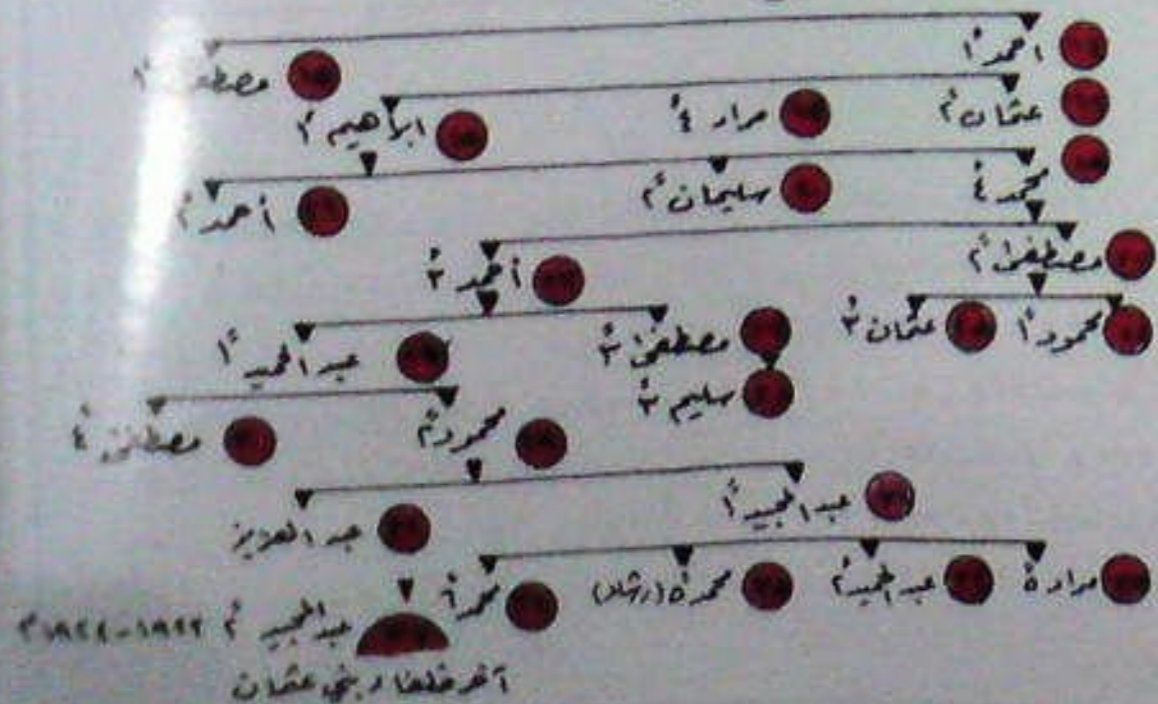 أحمد ١ مصطفى ١
عثمان ٢ مراد ٤ ابراهيم ٢
محمد ٤ سليمان ٢ أحمد ٢
مصطفى ٢ أحمد ٣
محمود ١ عثمان ٣ مصطفى ٣ عبد الحميد ١
سليم ٣
محمود ٢ مصطفى ٤
عبد المجيد ١ عبد العزيز
مراد ٥ عبد الحميد ٢ محمد ٥ (رشاد) محمد ٦
عبد المجيد ٢ ١٩٢٢-١٩٢٤ م
آخر خلفاء بني عثمان